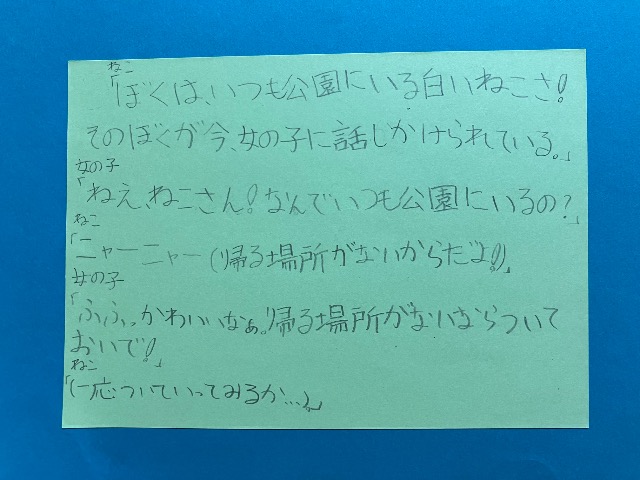 ねこ
「ぼくは、いつも公園にいる白いねこさ!
そのぼくが今、女の子に話しかけられている。」
女の子
「ねえ、ねこさん!なんでいつも公園にいるの?」
ねこ
「ニャーニャー(帰る場所がないからだよ!)」
女の子
「ふふっかわいいなぁ。帰る場所がないならついて
おいで!」
ねこ
「(一応ついていってみるか…)。」